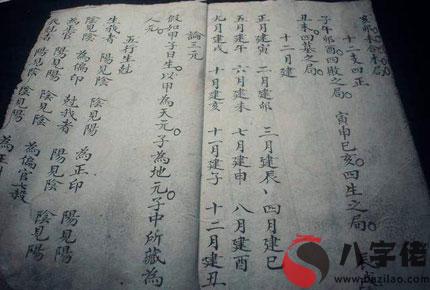 亥卯未合木局
十二支四正
子午卯酉四敗之局 寅申巳亥四生之局 辰戌
丑未四墓之局
十二月建
正月建寅 二月建卯 三月建辰 四月建巳
五月建午 六月建未 七月建申 八月建酉
九月建戌 十月建亥 十一月建子 十二月建丑
論三元
假如甲子日生以甲為天元子為地元子中所藏為
人元
五行生尅
生我者 陰見陽 陽見陰 為正印
陰見陰 陽見陽 為偏印
尅我者 陽見陰 陰見陽 為正
陽見陽 陰見陰 為偏官七殺
八字佬
www.bazilao.com